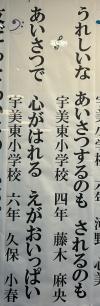 うれしいな あいさつするのも されるのも
宇美東小学校 四年 藤木 麻央
あいさつで 心がはれる えがおいっぱい
宇美東小学校 六年 久保 小春